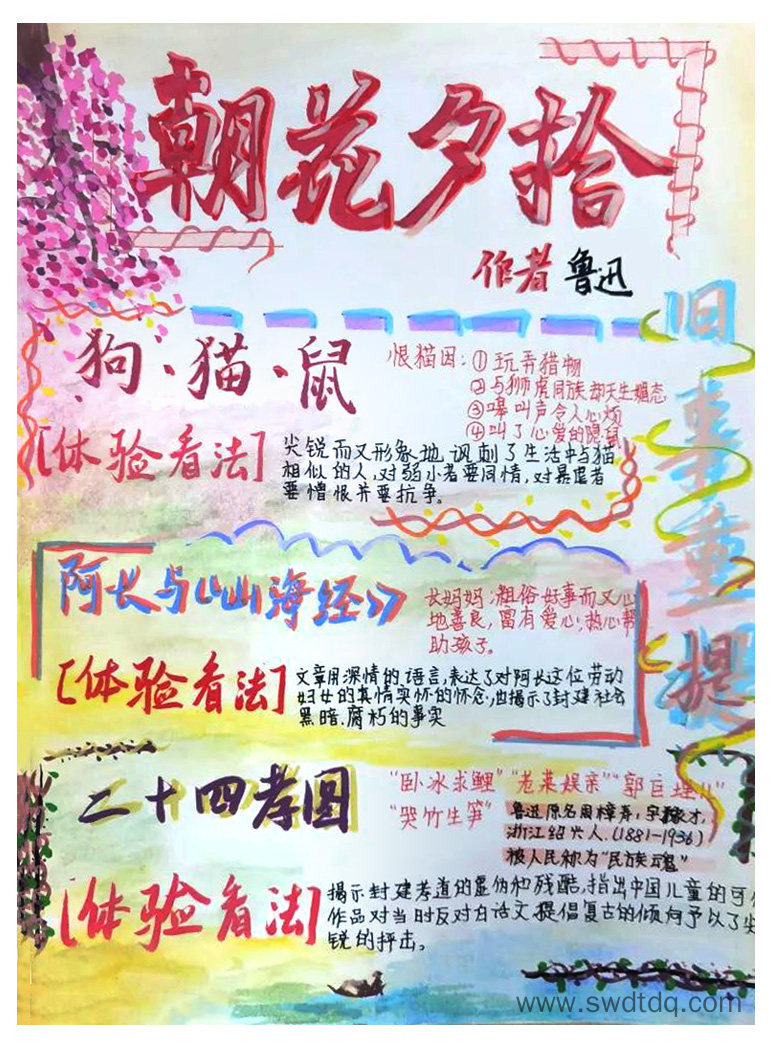 朝花夕拾
作者 鲁迅
旧事重提
狗·猫·鼠
恨猫因:①玩弄猎物
②与狮虎同族却天生媚态
③嗥叫声令人心烦
④叫了心爱的隐鼠
[体验看法]
尖锐而又形象地讽刺了生活中与猫
相似的人,对弱小者要同情,对暴虐者
要憎恨并要抗争。
阿长与《山海经》
长妈妈:粗俗好事而又心
地善良,富有爱心,热心帮
助孩子。
[体验看法]
文章用深情的语言,表达了对阿长这位劳动
妇女的真情实怀的怀念,也揭示了封建社会
黑暗、腐朽的事实
二十四孝图
“卧冰求鲤”“老莱娱亲”“郭巨埋儿”
“哭竹生笋”
鲁迅原名周樟寿,字豫才,
浙江绍兴人(1881-1936)
被人民称为“民族魂”
[体验看法]
揭示封建孝道的虚伪和残酷,指出中国儿童的可
作品对当时反对白话文,提倡复古的倾向予以了尖
锐的抨击。
www.swdtdq.com